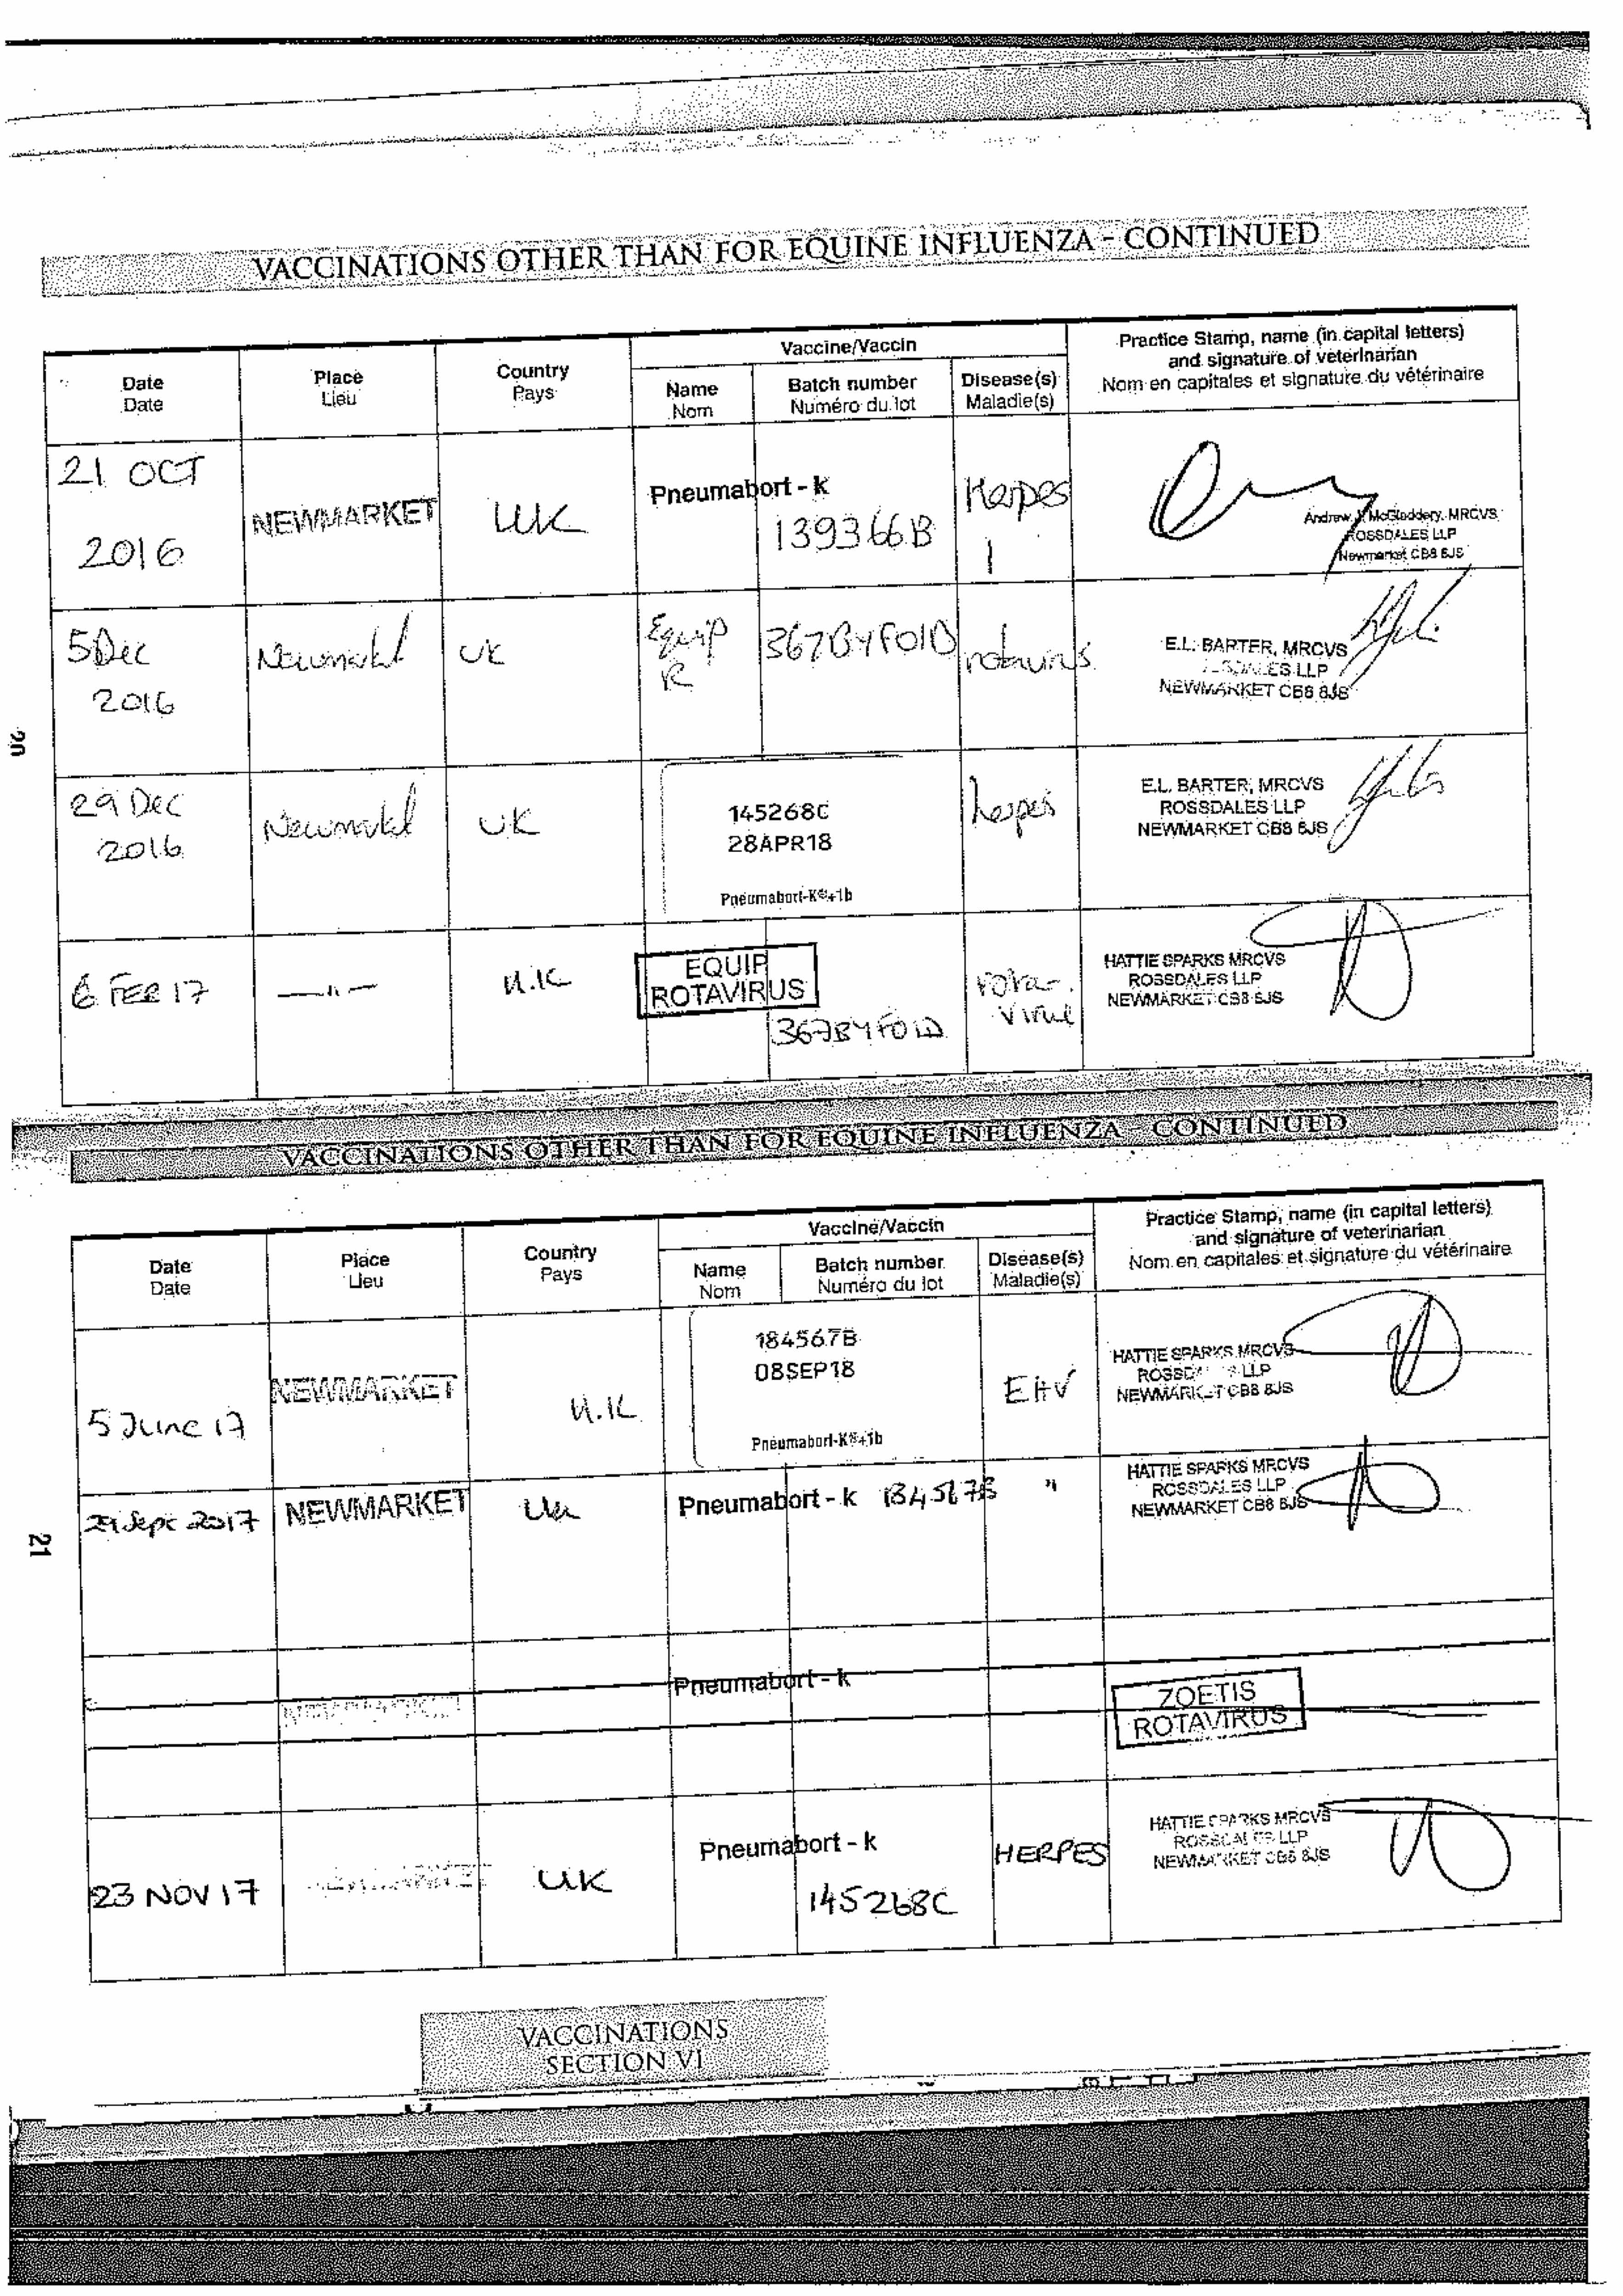 VACCINATIONS OTHER THAN FOR EQUINE INFLUENZA - CONTINUED
Date
Date
Place
Lieu
Country
Pays
Vaccine/Vaccin
Name
Nom
Batch number
Numéro du lot
Disease(s)
Maladie(s)
Practice Stamp, name (in capital letters)
and signature of veterinarian
Nom en capitales et signature du vétérinaire
21 OCT
2016
NEWMARKET
UK
Pneumabort - k
139366B
Herpes
1
Andrew J. McGladdery, MRCVS
ROSSDALES LLP
Newmarket CB8 8JS
5 Dec
2016
Newmarket
UK
Equip
R
367BYF01D
rotavirus
E.L. BARTER, MRCVS
LLP
NEWMARKET CB8 8JS
29 Dec
2016
Newmarket
UK
145268C
28APR18
Pneumabort-K®+1b
herpes
E.L. BARTER, MRCVS
ROSSDALES LLP
NEWMARKET CB8 8JS
6 FEB 17
—"—
U.K
EQUIP
ROTAVIRUS
367BYF01D
rota-
virus
HATTIE SPARKS MRCVS
ROSSDALES LLP
NEWMARKET CB8 8JS
20
VACCINATIONS OTHER THAN FOR EQUINE INFLUENZA - CONTINUED
Date
Date
Place
Lieu
Country
Pays
Vaccine/Vaccin
Name
Nom
Batch number
Numéro du lot
Disease(s)
Maladie(s)
Practice Stamp, name (in capital letters)
and signature of veterinarian
Nom en capitales et signature du vétérinaire
5 June 17
NEWMARKET
U.K
184567B
08SEP18
Pneumabort-K®+1b
EHV
HATTIE SPARKS MRCVS
LLP
NEWMARKET CB8 8JS
29 Sept 2017
NEWMARKET
UK
Pneumabort - k 184567B "
HATTIE SPARKS MRCVS
ROSSDALES LLP
NEWMARKET CB8 8JS
21
NEWMARKET
Pneumabort - k
ZOETIS
ROTAVIRUS
23 NOV 17
NEWMARKET
UK
Pneumabort - k
145268C
HERPES
HATTIE SPARKS MRCVS
ROSSDALES LLP
NEWMARKET CB8 8JS
VACCINATIONS
SECTION VI